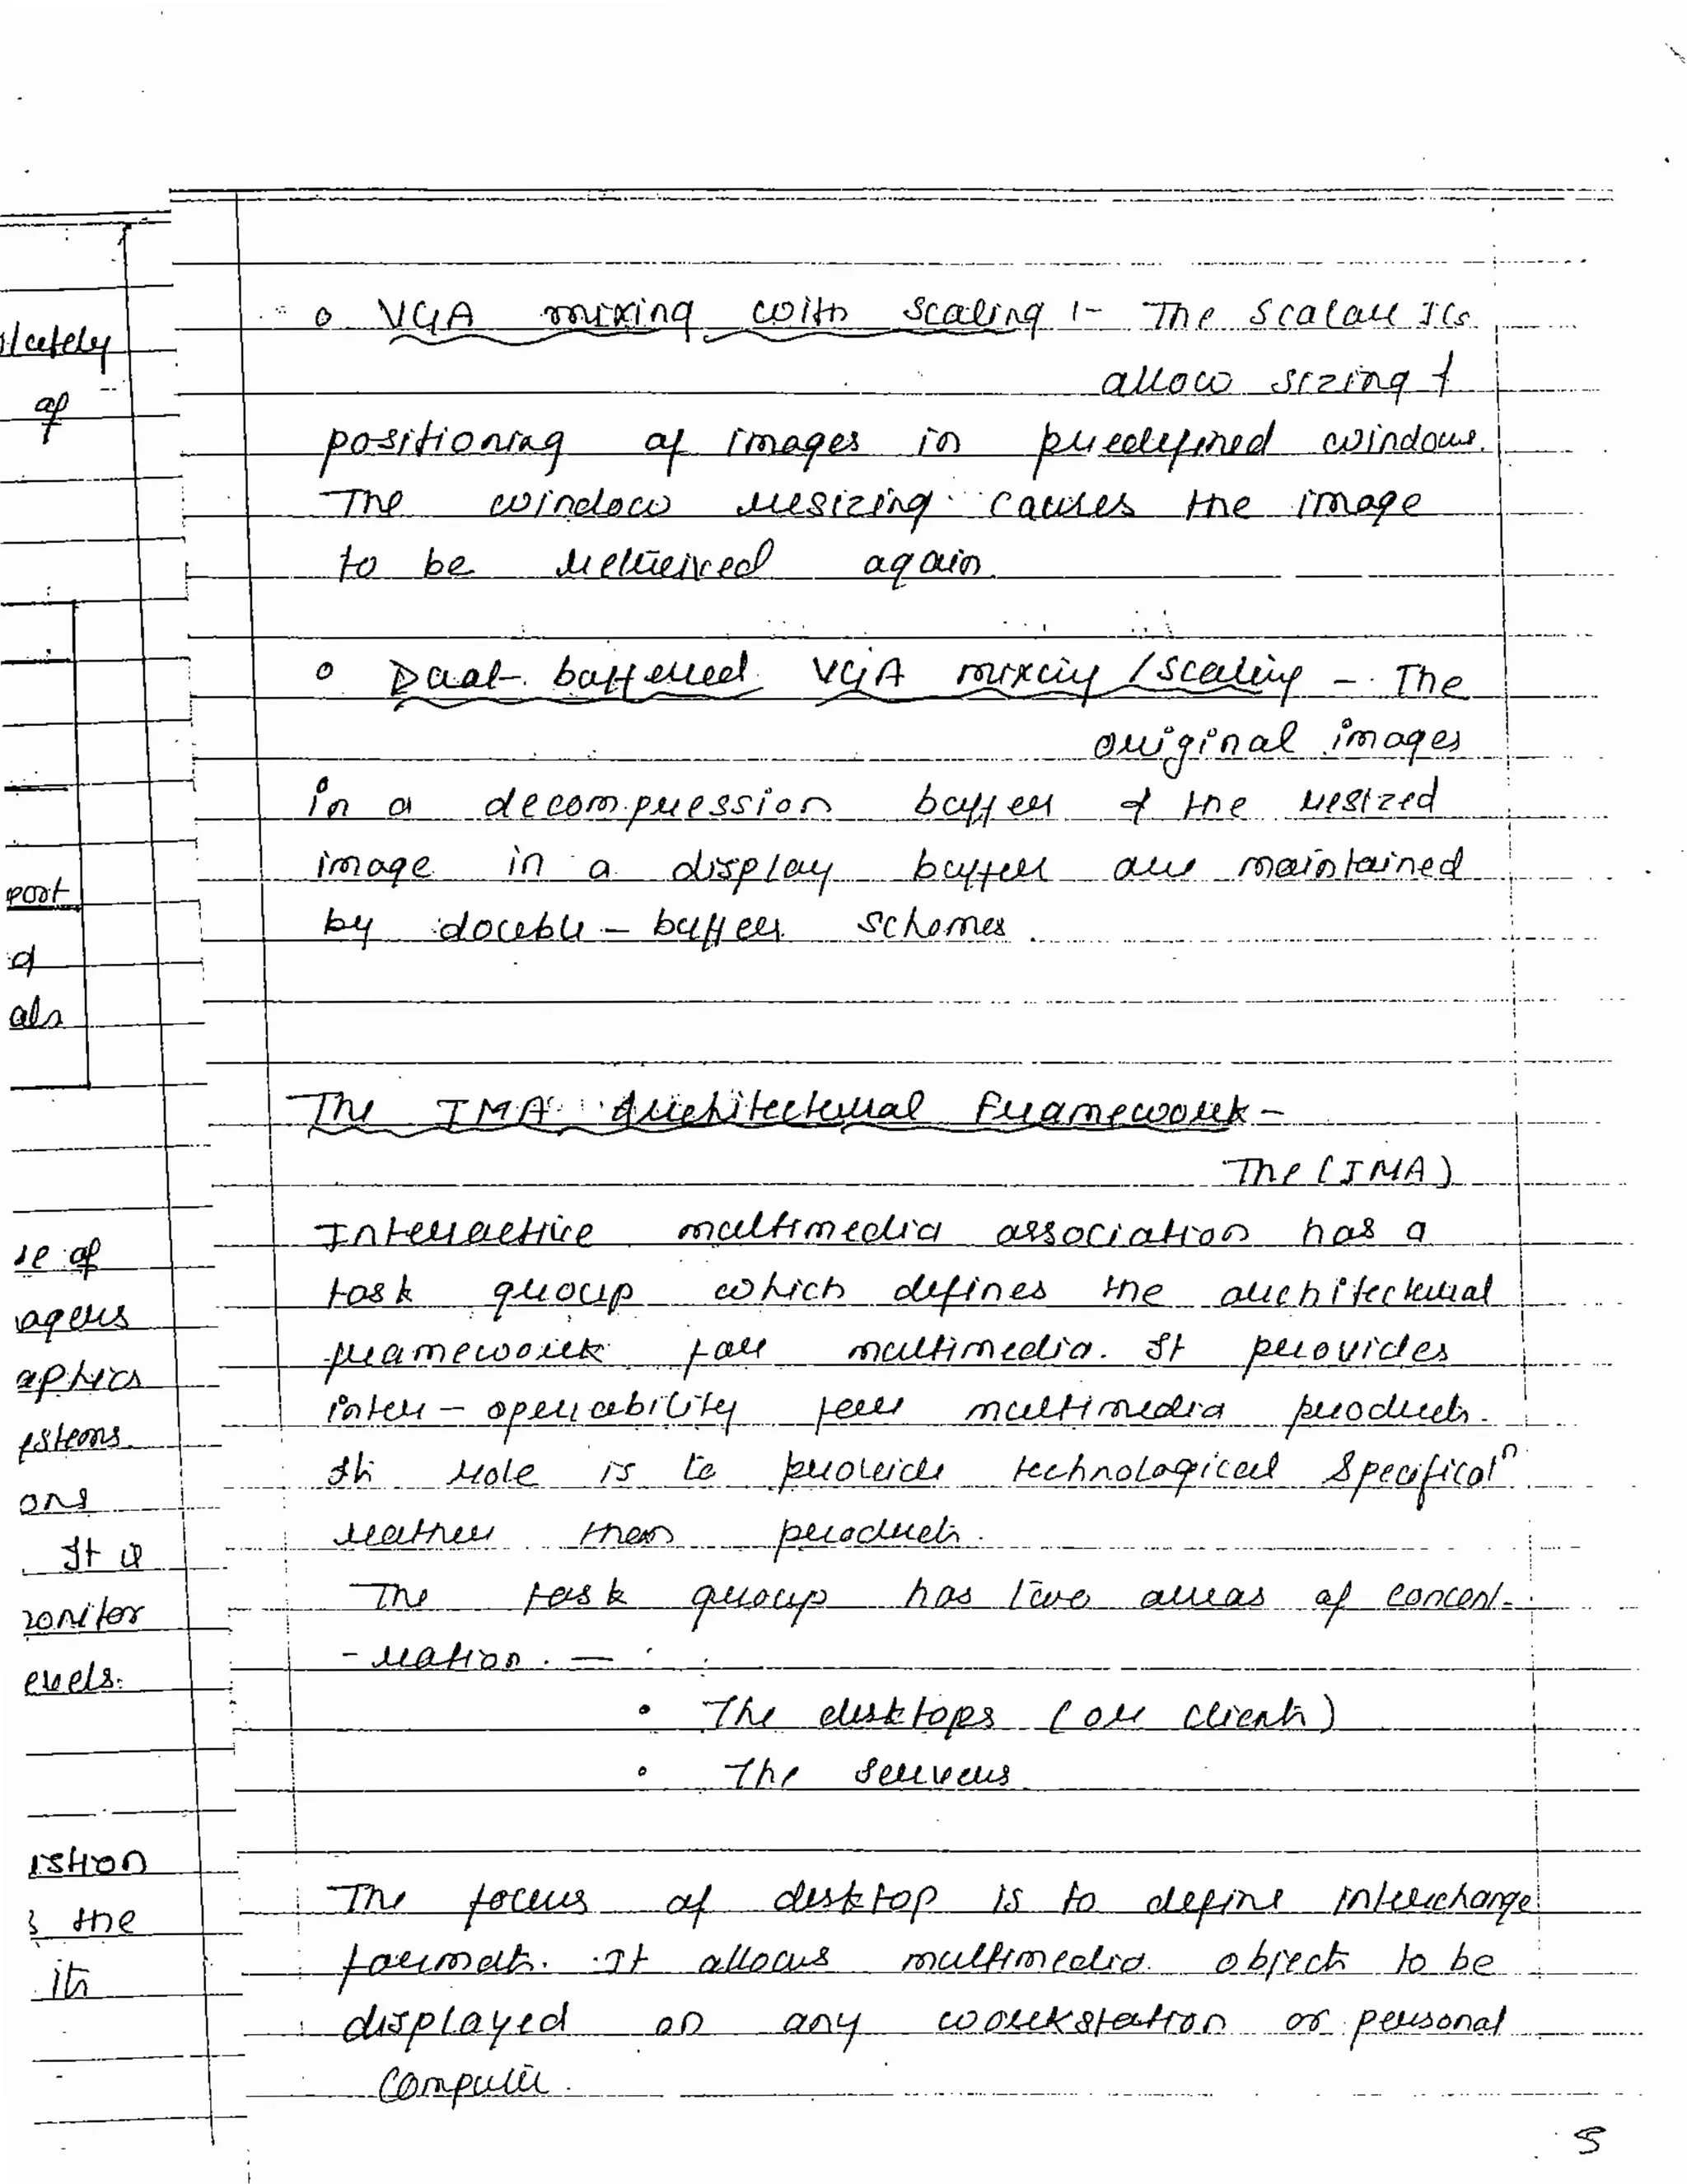 o VGA mixing with scaling :- The Scalar ICs
allow sizing &
positioning of images in predefined windows.
The window resizing causes the image
to be retrieved again.
o Dual-buffered VGA mixing / Scaling - The
original images
in a decompression buffer & the resized
image in a display buffer are maintained
by double - buffer schemes.
The IMA Architectural Framework -
The (IMA)
Interactive multimedia association has a
task group which defines the architectural
framework for multimedia. It provides
inter - operability for multimedia products.
Its role is to provide technological Specificatⁿ
rather then products.
The task group has two areas of concent-
- ration. —
• The desktops (or clients)
• The servers
The focus of desktop is to define interchange
formats. It allows multimedia objects to be
displayed on any workstation or personal
Computer.
5
of
port
als
se of
aphics
ons
It is
onitor
evels.
the
its